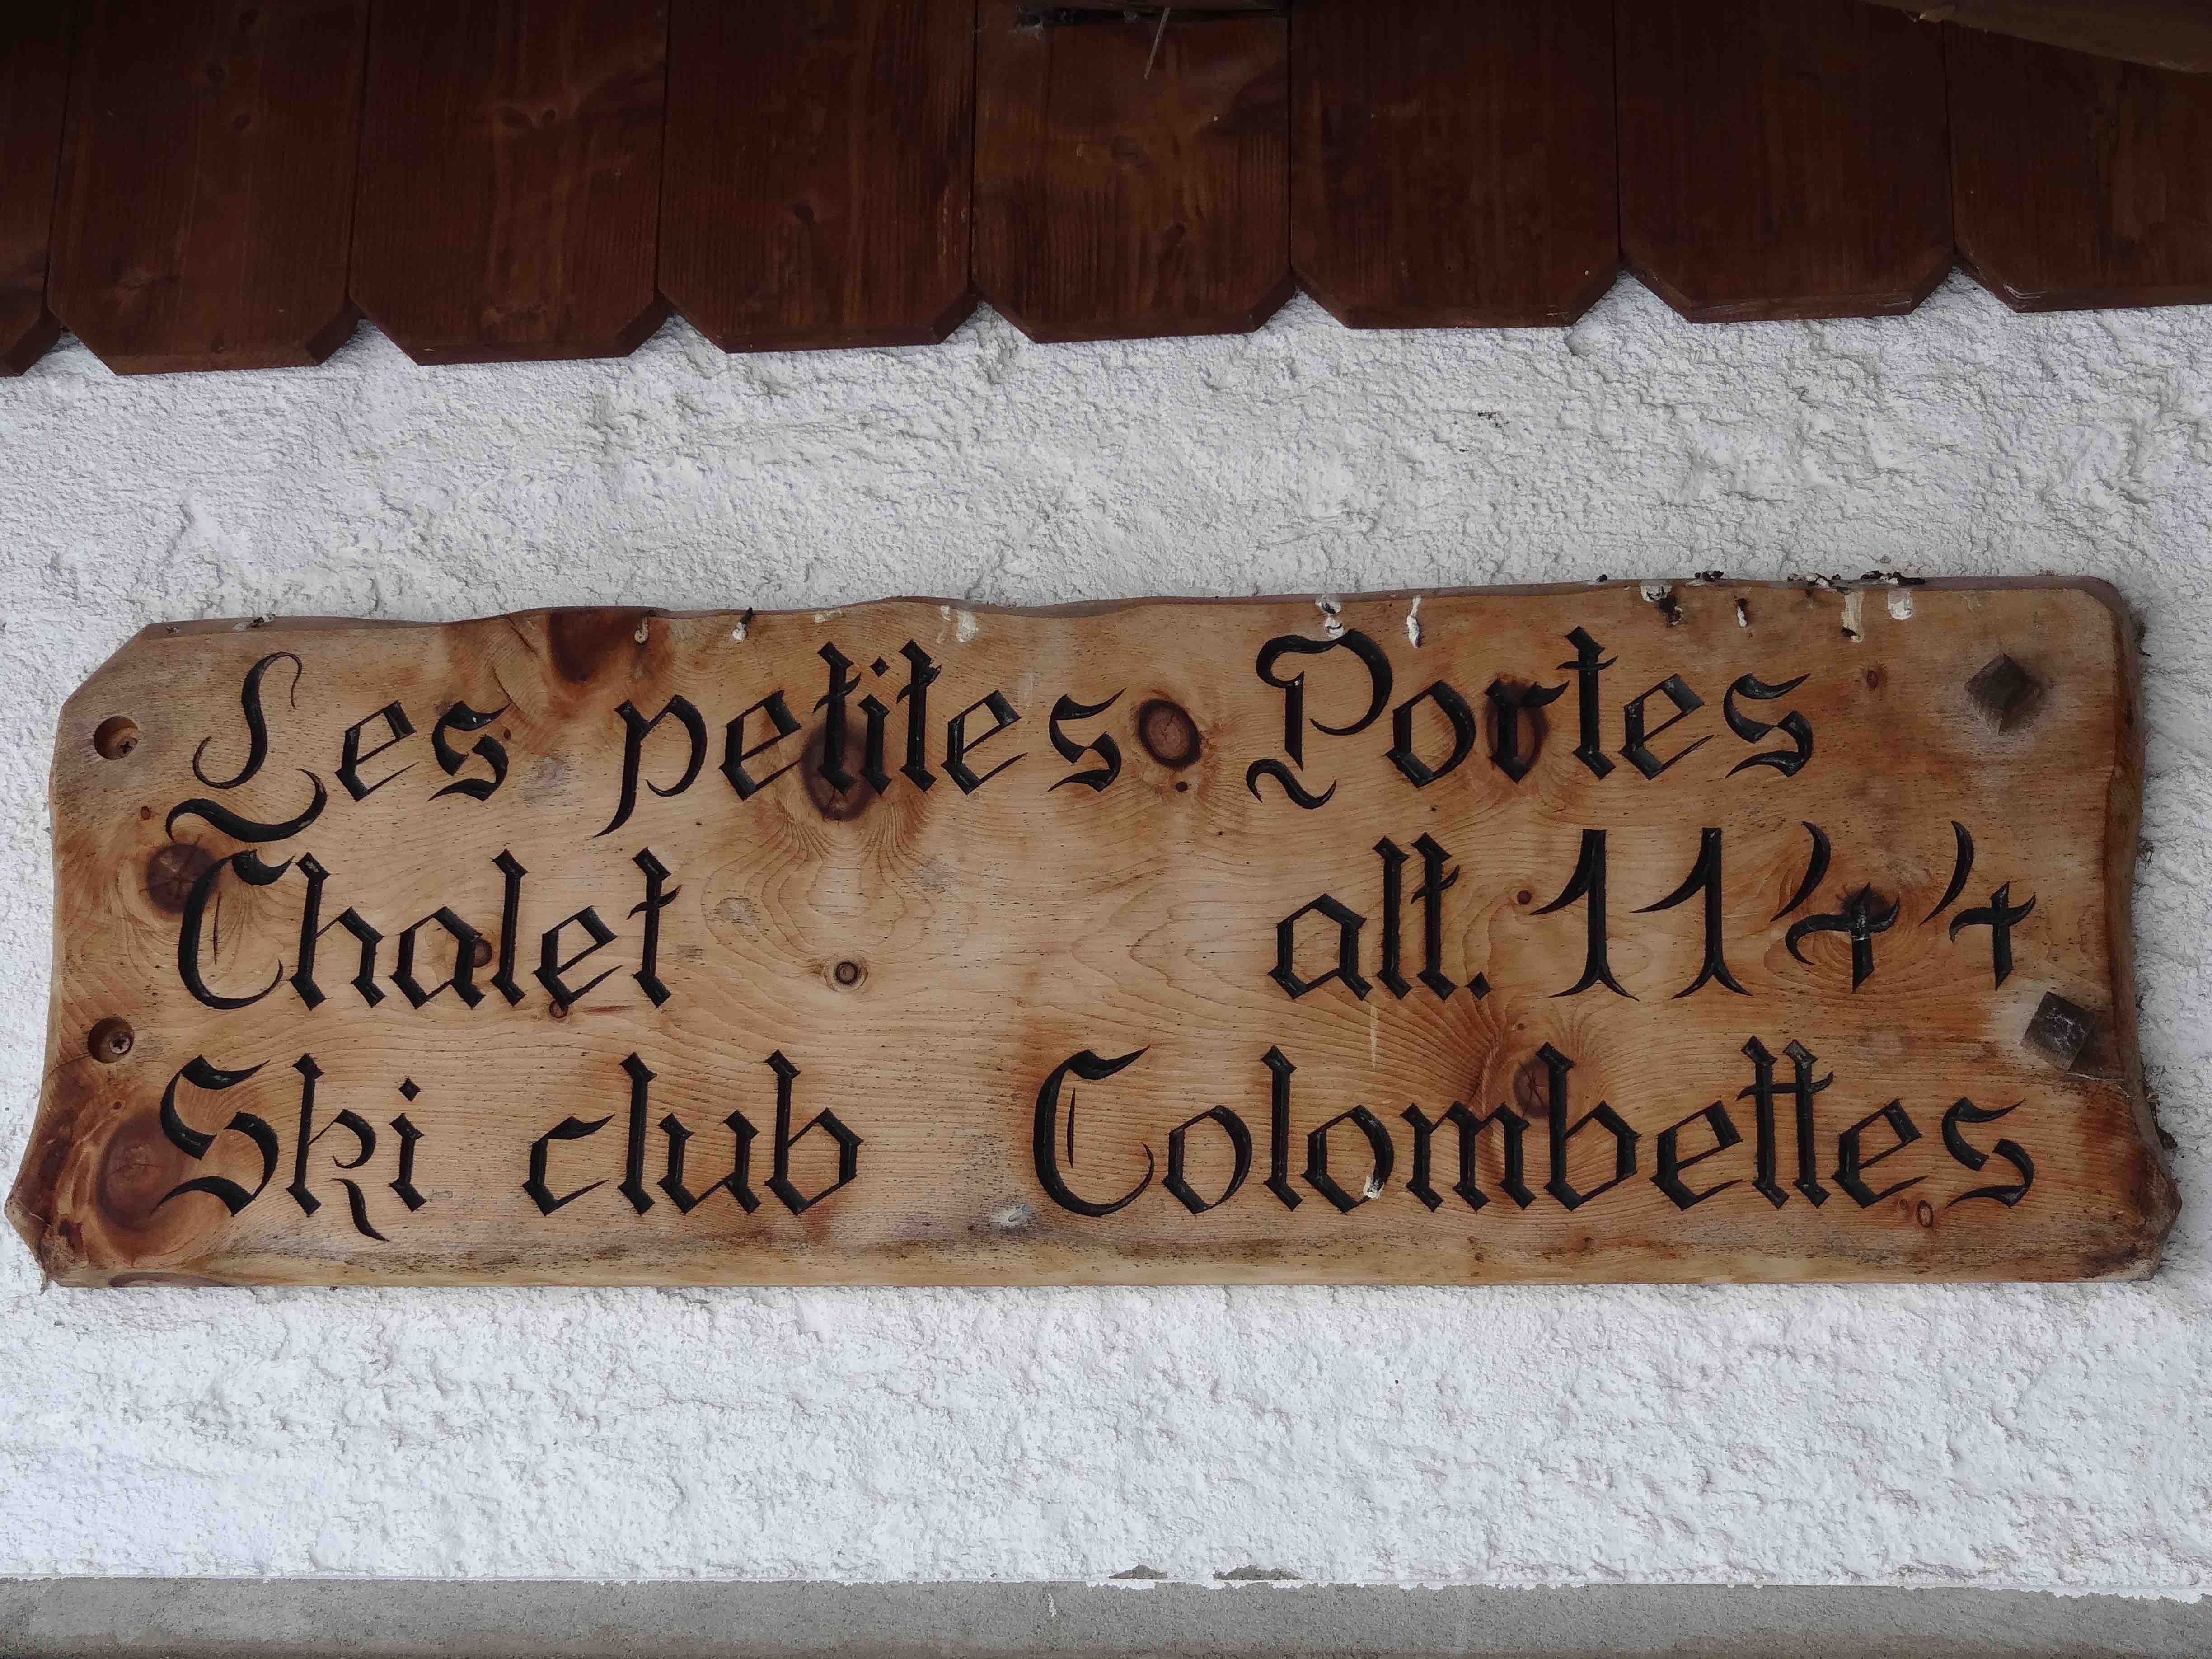 Les petites Portes
Chalet alt. 1144
Ski club Colombettes